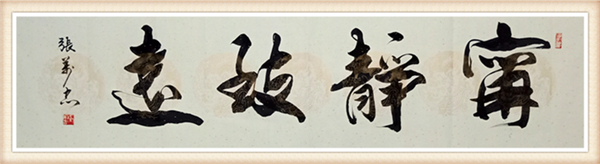 寧靜致遠
張萬忠